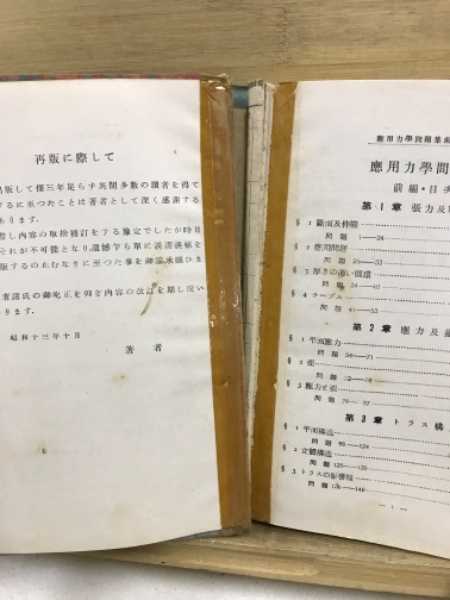 再版に際して
出版して僅三年足らず其間多數の讀者を得て
するに至つたことは著者として深く感謝する
あります。
際し內容の取捨補訂をする豫定でしたが時日
それが不可能となり遺憾乍ら單に誤書誤植を
版するの止むなきに至つた事を御諒承願ひま
者諸氏の御叱正を仰ぎ內容の改訂を期し度い
ります。
昭和十三年十月
著者
應用力學問題集前
應用力學問
前編・目次
第1章 張力及
§ 1 斷面及伸縮
問題 1—24
§ 2 應用問題
問題 25—33
§ 3 厚さの薄い圓環
問題 34—40
§ 4 テーブル
問題 41—53
第2章 應力及
§ 1 平面應力
問題 54—71
§ 2 歪
問題 72—78
§ 3 應力と歪
問題 79—97
第3章 トラス構
§ 1 平面構造
問題 98—124
§ 2 立體構造
問題 125—135
§ 3 トラスの影響線
問題 136—146
— 1 —